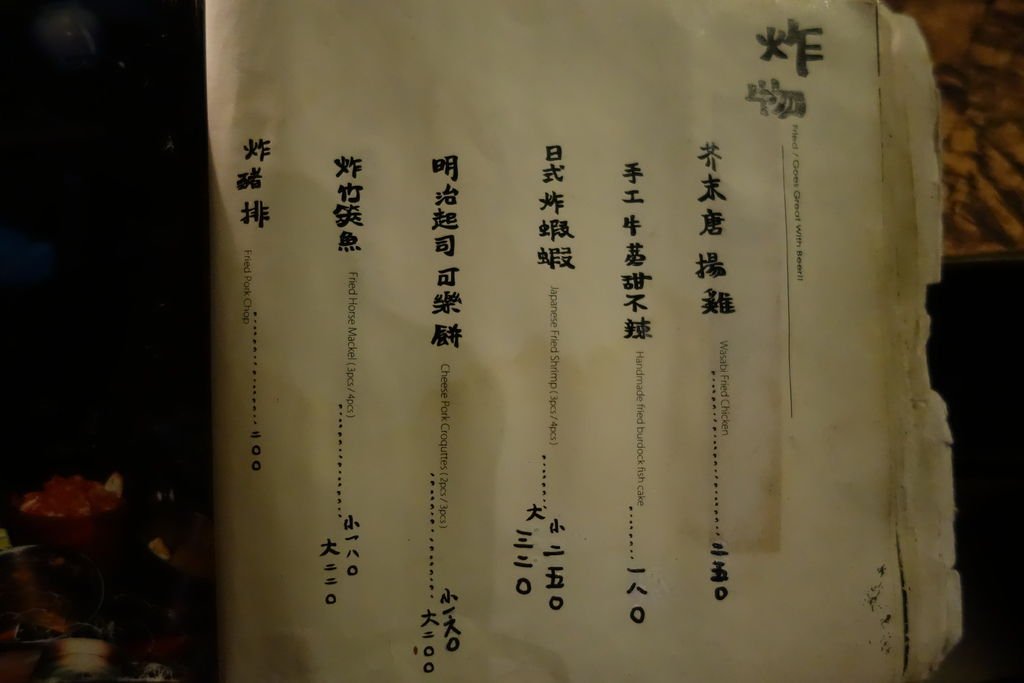 炸物
Fried / Goes Great With Beer!!
芥末唐揚雞 Wasabi Fried Chicken 二五〇
手工牛蒡甜不辣 Handmade fried burdock fish cake 一八〇
日式炸蝦蝦 Japanese Fried Shrimp (3pcs/4pcs) 小二五〇 大三二〇
明治起司可樂餅 Cheese Pork Croquttes (2pcs/3pcs) 小一六〇 大二〇〇
炸竹筴魚 Fried Horse Mackel (3pcs/4pcs) 小一八〇 大二二〇
炸豬排 Fried Pork Chop 二〇〇